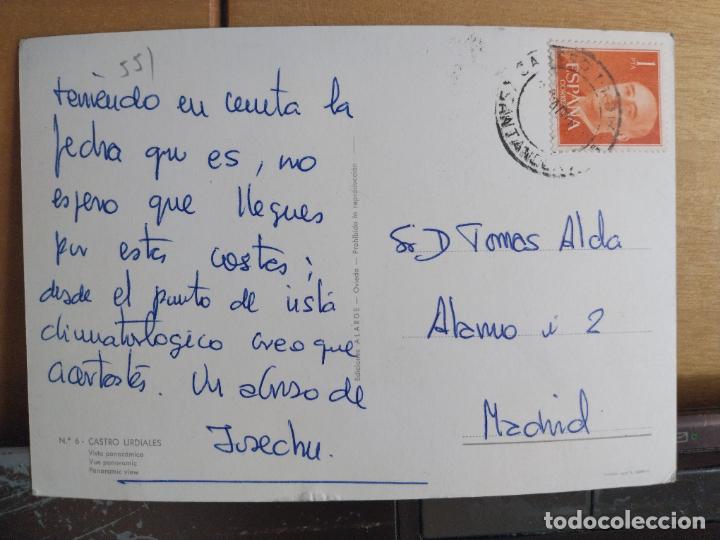 551
teniendo en cuenta la
fecha que es, no
espero que llegues
por estas costas;
desde el punto de vista
climatologico creo que
acertastes. Un abrazo de
Josechu.
Nº 6 - CASTRO URDIALES
Vista panorámica
Vue panoramic
Panoramic view
Ediciones ALARDE — Oviedo — Prohibida la reproducción
1
PTA
ESPAÑA
CORREOS
SANTANDER
Sr D Tomas Alda
Alamo 2
Madrid
todocoleccion.net